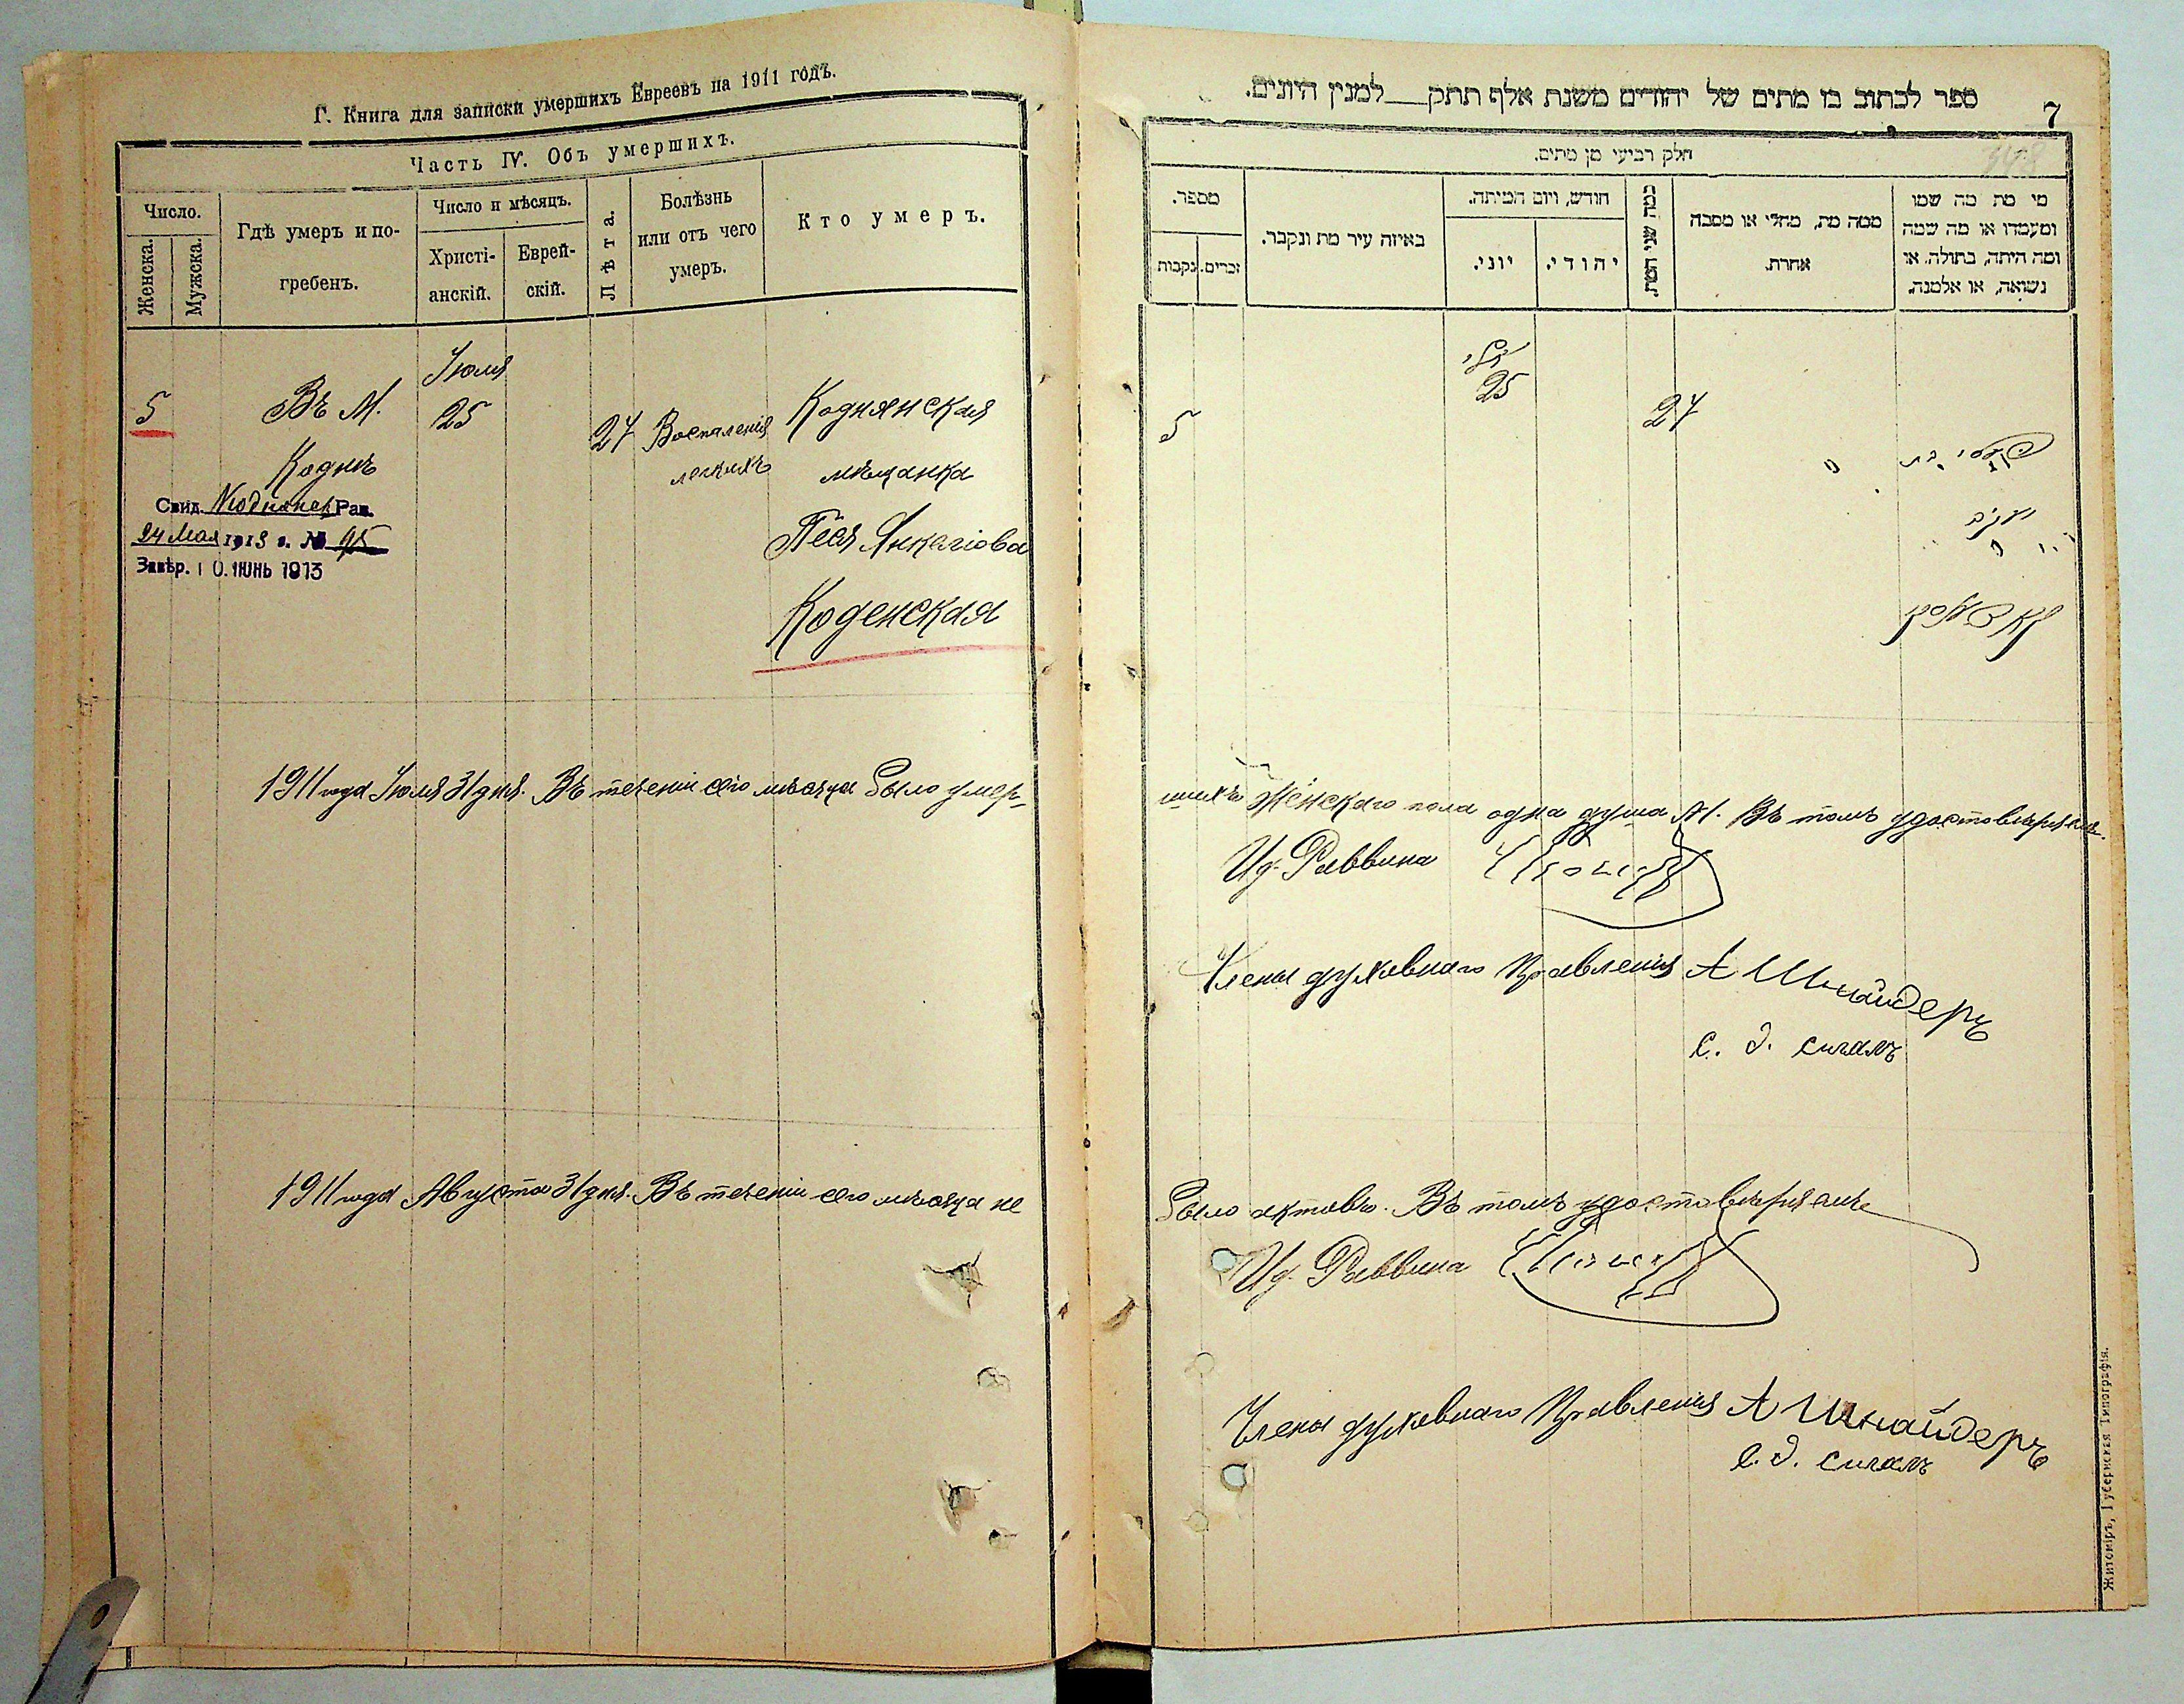 Г. Книга для записки умершихъ Евреевъ на 1911 годъ.
Часть IV. Объ умершихъ.
Число.
Женска.
Мужска.
Гдѣ умеръ и по-
гребенъ.
Число и мѣсяцъ.
Христі-
анскій.
Еврей-
скій.
Лѣта.
Болѣзнь
или отъ чего
умеръ.
Кто умеръ.
Іюля
5 Въ М. 25 27 Воспаленія Коднянская
Коднѣ легкихъ мѣщанка
Песя Янкеліова
Коденская
Свид. Рав.
24 Мая 1913 г. № 95
Завѣр. 10. ІЮНЬ 1913
1911 года Іюля 31 дня. Въ теченіи сего мѣсяца было умер-
1911 года Августа 31 дня. Въ теченіи сего мѣсяца не
ספר לכתוב בו מתים של יהודים משנת אלף תתק למנין היונים.
7
חלק רביעי מן מתים.
מספר.
זכרים.
נקבות
באיזה עיר מת ונקבר.
חודש, ויום המיתה.
יוני.
יהודי.
כמה שני המת.
ממה מת, מחלי או מסבה
אחרת.
מי מת מה שמו
ומעמדו או מה שמה
ומה היתה, בתולה, או
נשואה, או אלמנה.
יולי
25
5 27
שихъ женскаго пола одна душа №1. Въ томъ удостовѣряемъ.
И д. Раввина
Члены духовнаго Правленія А Шнайдеръ
С. д. сигалъ
было актовъ. Въ томъ удостовѣряемъ
И д. Раввина
Члены духовнаго Правленія А Шнайдеръ
С. д. сигалъ
Житоміръ, Губернская Типографія.